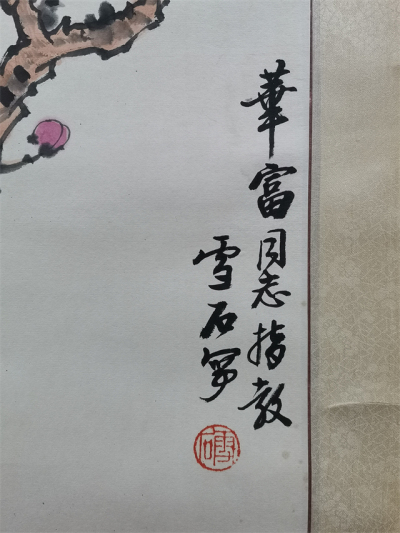 華富同志指教
雪石写